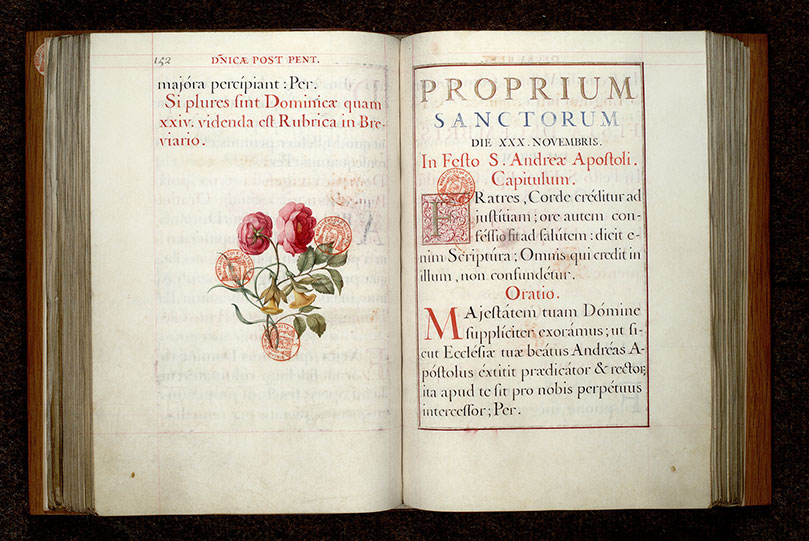 152
DÑICÆ POST PENT.
majóra percípiant : Per.
Si plures ſint Dominicæ quam
xxiv. videnda eſt Rubrica in Bre-
viario.
PROPRIUM
SANCTORUM
DIE XXX. NOVEMBRIS.
In Feſto S. Andreæ Apoſtoli.
Capitulum.
FRatres, Corde créditur ad
juſtítiam; ore autem con-
féſſio fit ad ſalútem: dicit e-
nim Scriptúra; Omnis qui credit in
illum, non confundétur.
Oratio.
MAjeſtátem tuam Dómine
ſupplíciter exorámus; ut ſi-
cut Eccléſiæ tuæ beátus Andréas A-
póſtolus éxtitit prædicátor & rector;
ita apud te ſit pro nobis perpétuus
interceſſor; Per.